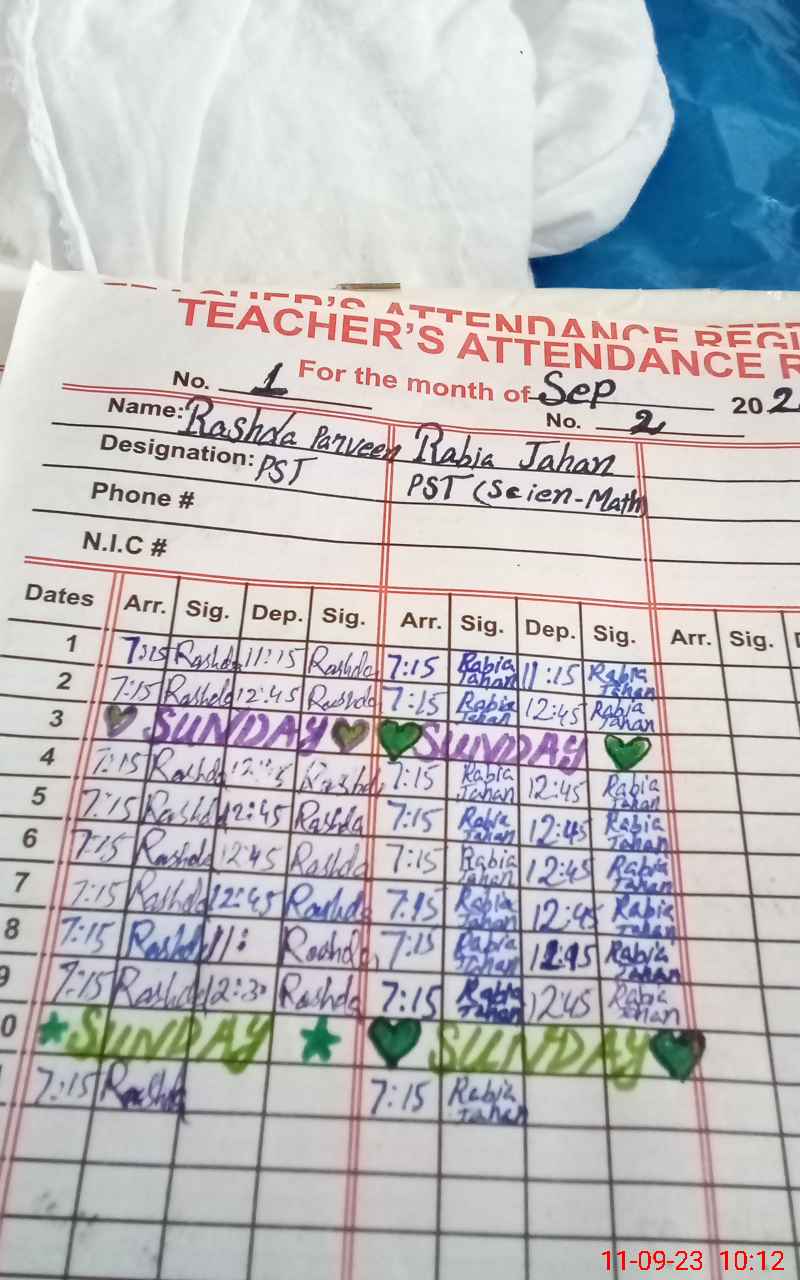 TEACHER'S ATTENDANCE REGI
TEACHER'S ATTENDANCE R
No. 1 For the month of Sep 202
No. 2
Name: Rashda Parveen Rabia Jahan
Designation: PST PST (Scien-Math
Phone #
N.I.C #
Dates Arr. Sig. Dep. Sig. Arr. Sig. Dep. Sig. Arr. Sig. D
1 7:15 Rashda 11:15 Rashda 7:15 Rabia Jahan 11:15 Rabia Jahan
2 7:15 Rashda 12:45 Rashda 7:15 Rabia Jahan 12:45 Rabia Jahan
3 SUNDAY SUNDAY
4 7:15 Rashda Rashda 7:15 Rabia Jahan 12:45 Rabia Jahan
5 7:15 Rashda 12:45 Rashda 7:15 Rabia Jahan 12:45 Rabia Jahan
6 7:15 Rashda 12:45 Rashda 7:15 Rabia Jahan 12:45 Rabia Jahan
7 7:15 Rashda 12:45 Rashda 7:15 Rabia Jahan 12:45 Rabia Jahan
8 7:15 Rashda 11: Rashda 7:15 Rabia Jahan 12:45 Rabia Jahan
9 7:15 Rashda 12:30 Rashda 7:15 Rabia Jahan 12:45 Rabia Jahan
0 SUNDAY SUNDAY
7:15 Rashda 7:15 Rabia Jahan
11-09-23 10:12